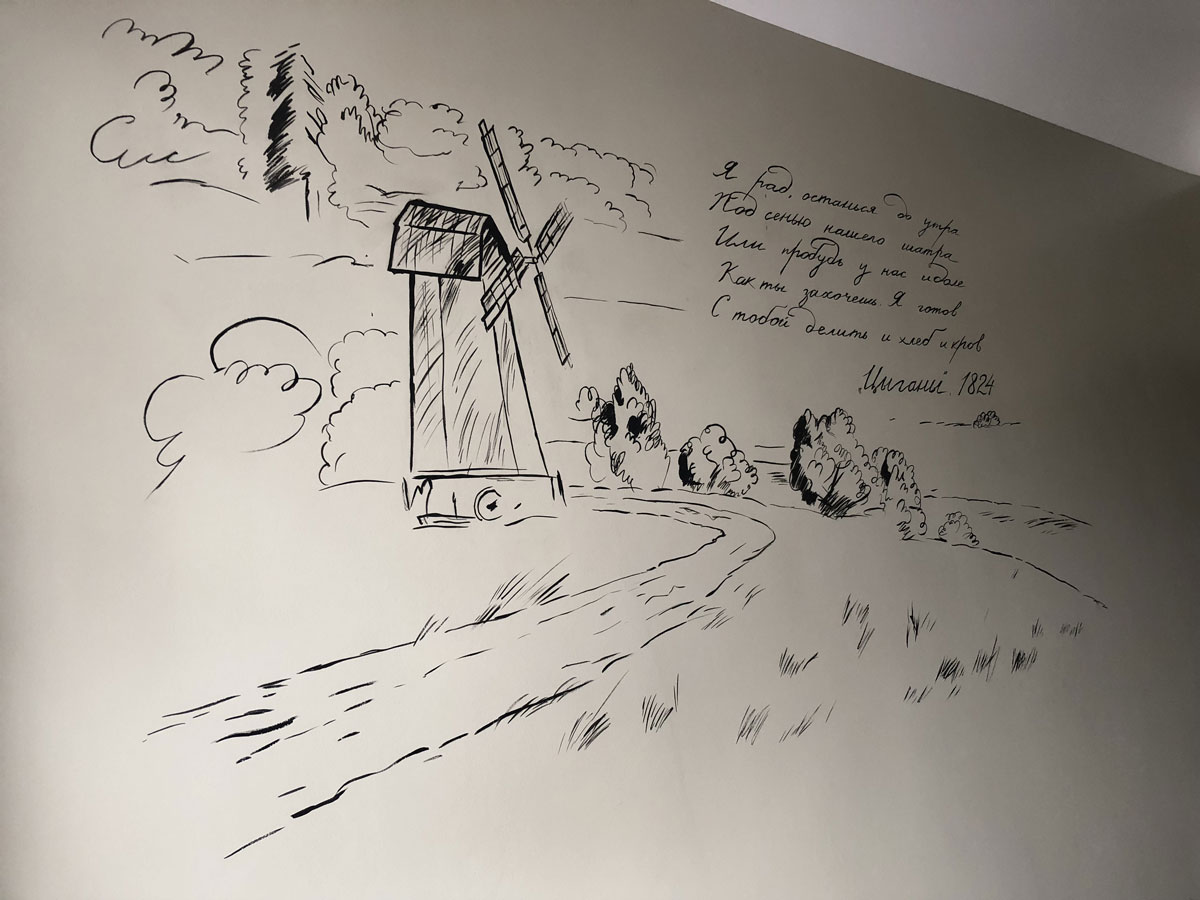 Я рад, останься до утра
Под сенью нашего шатра
Или пробудь у нас идоле
Как ты захочешь. Я готов
С тобой делить и хлеб и кров
Цигоны. 1824